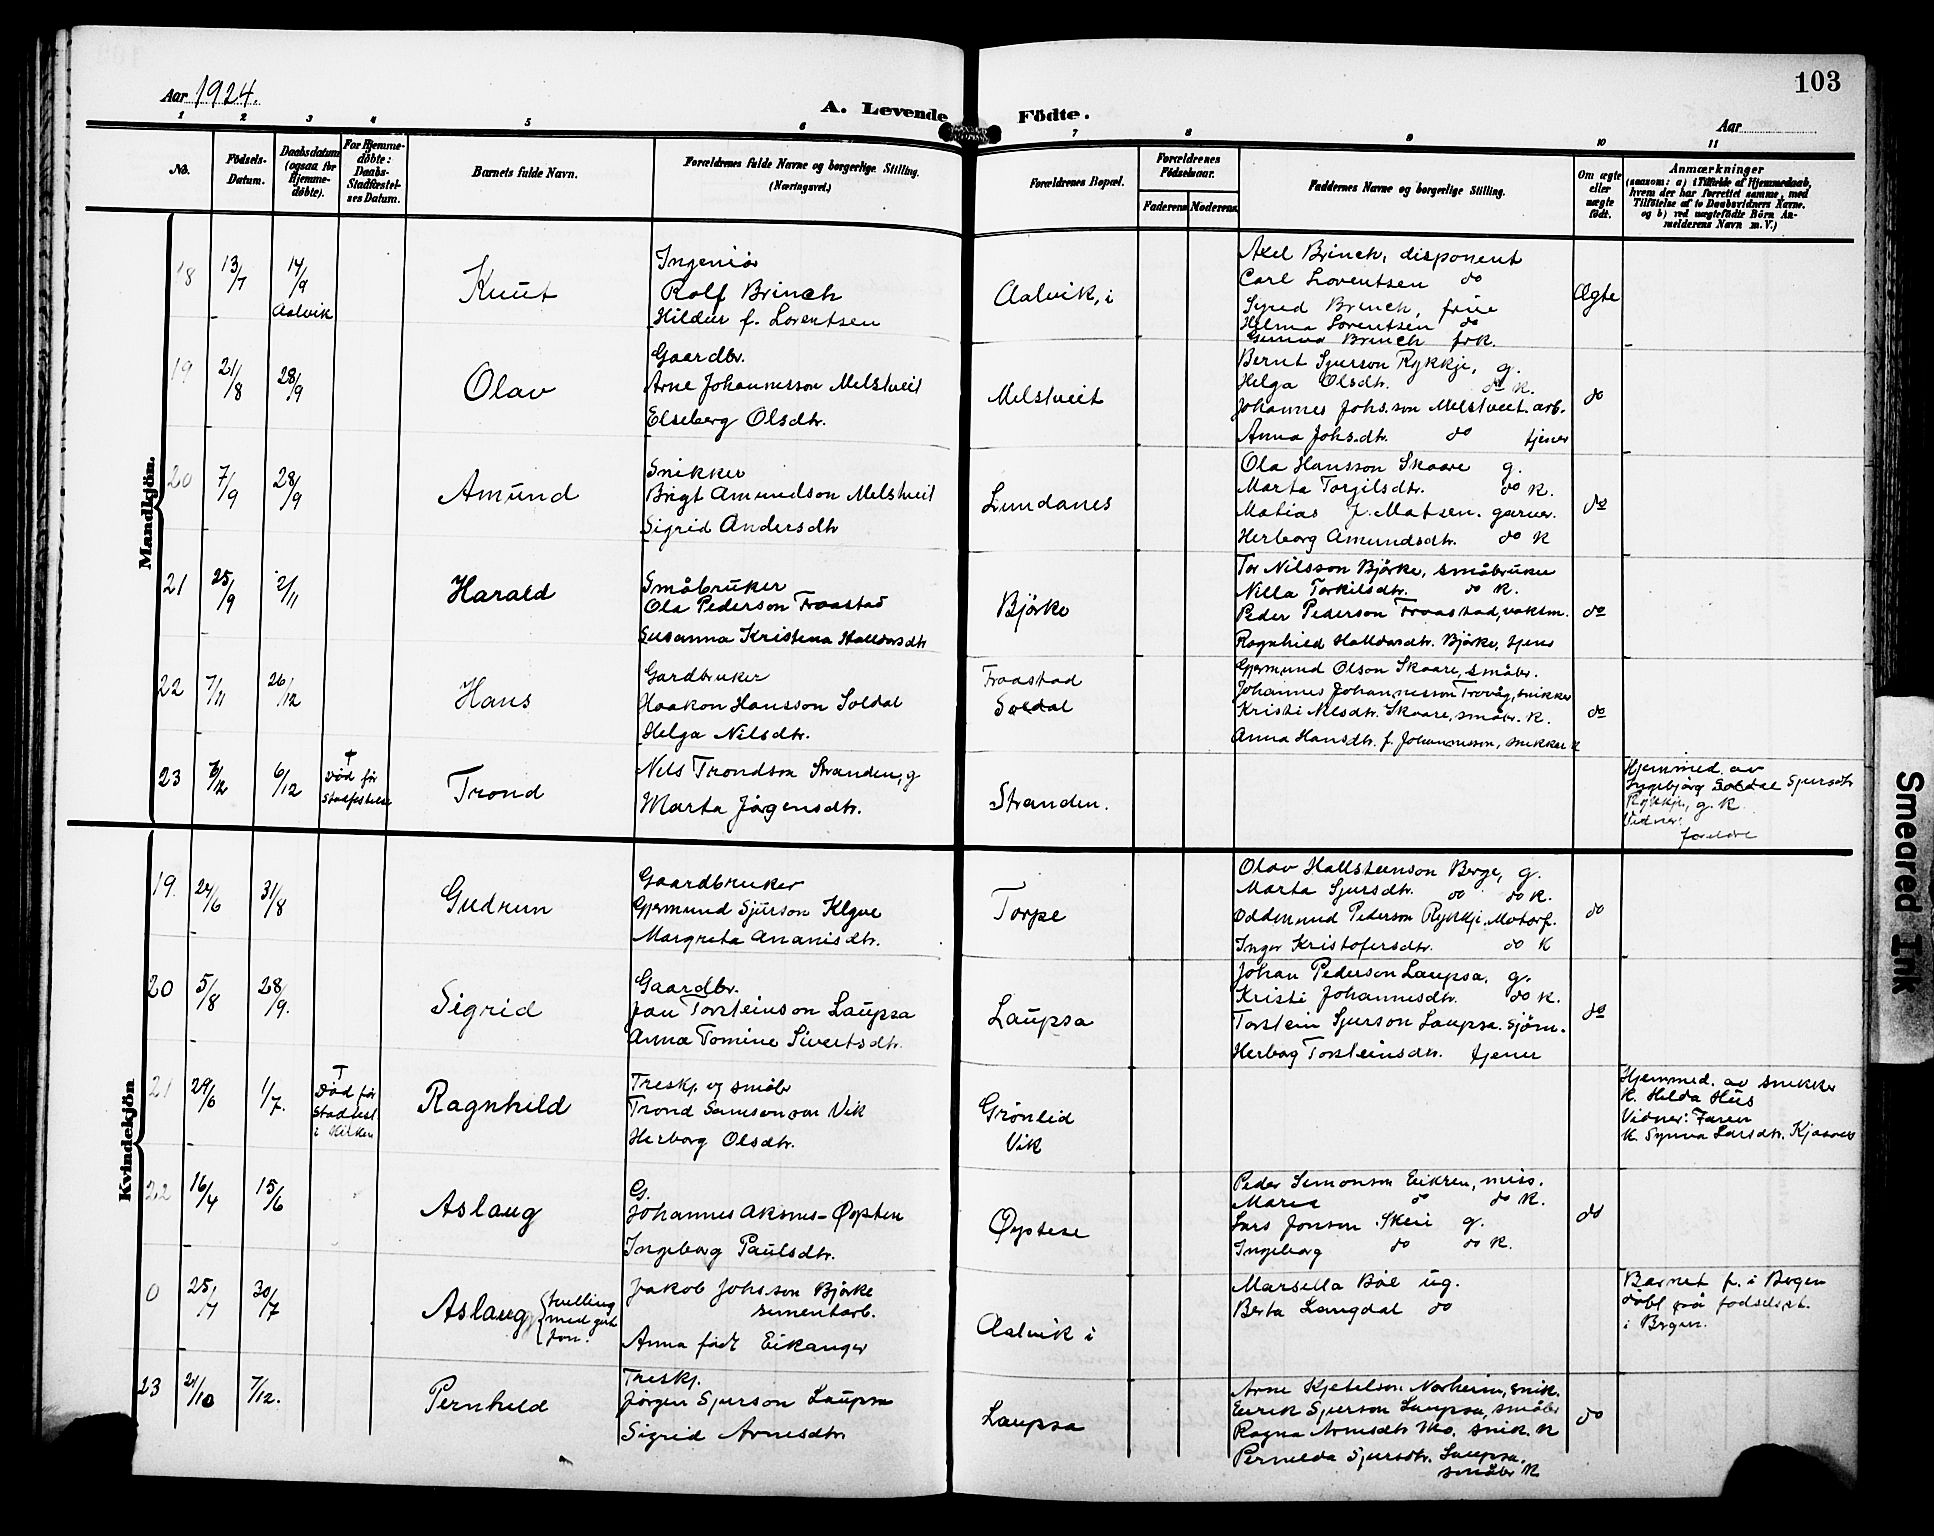 103
Aar 1924.
A. Levende Födte.
Aar
1 2 3 4 5 6 7 8 9 10 11
No.
Födsels-Datum.
Daabsdatum (ogsaa for Hjemmedøbte).
For Hjemmedöbte: Daabs-Stadfæstelses Datum.
Barnets fulde Navn.
Forældrenes fulde Navne og borgerlige Stilling.
(Næringsvei.)
Forældrenes Bopæl.
Forældrenes Födselsaar.
Faderens Moderens
Faddernes Navne og borgerlige Stilling.
Om ægte eller uægte födt.
Anmærkninger
(saasom: a) i Tilfælde af Hjemmedaab,
hvem der har forrettet samme, med
Tilföielse af to Daabsvidners Navne.
og b) ved uægtefödte Börn An-
melderens Navn m. V.)
Mandkjön.
18 13/7 14/9 Aalvik
Knut
Ingeniör
Rolf Brinch
Hildur f. Lorentsen
Aalvik, i
Axel Brinch, disponent
Carl Lorentsen do
Brinch, frue
Helma Lorentsen do
Brinch frk.
Ægte
19 21/8 28/9
Olav
Gaardbr.
Arne Johannesson Melstveit
Elseberg Olsdtr.
Melstveit
Bernt Sjurson Rykkje, g.
Helga Olsdtr. do K.
Johannes Johs.son Melstveit arb.
Anna Johs.dtr. do tjener
do
20 7/9 28/9
Amund
Snikker
Brigt Amundson Melstveit
Sigrid Andersdtr
Lundanes
Ola Hansson Skaare g.
Marta Torgilsdtr. do K.
Matias J. Matsen. garver.
Herborg Amundsdtr. do K
do
21 25/9 2/11
Harald
Småbruker
Ola Pederson Fraastad
Susanna Kristena Halldorsdtr
Bjørke
Tor Nilsson Bjørke, småbruker
Nilla Torkilsdtr. do K.
Peder Pederson Fraastad, vaktm.
Ragnhild Halldorsdtr. Bjørke, tjener
do
22 7/11 26/12
Hans
Gardbruker
Haakon Hansson Soldal
Helga Nilsdtr.
Fraastad
Soldal
Gjermund Olson Skaare, småbr.
Johannes Johannesson Trovåg, snikker
Kristi Nilsdtr. Skaare, småbr. K.
Anna Hansdtr. f. Johannesson, snikker K
do
23 6/12 6/12
†
Død før
Stadfestelse
Trond
Nels Trondson Stranden, g
Marta Jørgensdtr.
Stranden.
Hjemmed. av
Ingebjørg Sjursdtr
Rykkje, g. K.
Vidner:
foreldre
Kvindekjön
19. 24/6 31/8
Gudrun
Gaardbruker
Gjermund Sjurson Klyve
Margreta Ananisdtr.
Torpe
Olav Hallsteinson Berge, g.
Marta Sjursdtr. do do K.
Oddmund Pederson Rykkje. Motorf.
Inger Kristofersdtr. do K
do
20 5/8 28/9.
Sigrid
Gaardbr.
Jon Torsteinson Laupsa
Anna Tomine Sivertsdtr.
Laupsa
Johan Pederson Laupsa. g.
Kristi Johannesdtr. do K.
Torstein Sjurson Laupsa. sjøm.
Herborg Torsteinsdtr. tjener
do
21 29/6 1/7.
†
Død før
Stadfest
i Kirken
Ragnhild
Treskj. og småbr
Trond Samsonson Vik
Herborg Olsdtr.
Grønlid
Vik
Hjemmed. av snikker
K. Hilda Hus
Vidner: Faren
K. Synva Larsdtr.
22 16/4 15/6
Aslaug
G.
Johannes Aksnes-Øysten
Ingeborg Paulsdtr.
Øystese
Peder Simonson Eikren, miss.
Maria do do K.
Lars Jonson Skeie g.
Ingeborg do do K.
do
0 25/7 30/7
Aslaug
tvilling
med gut
Jon.
Jakob Johs.son Bjørke
sementarb.
Anna født Eikanger
Aalvik i
Marsella Bøe ug.
Berta Langdal do
Barnet f. i Bergen
døbt på fødselsst.
i Bergen.
23 24/10 7/12.
Pernhild
Treskj.
Jørgen Sjurson Laupsa
Sigrid Arnesdtr
Laupsa
Arne Kjetelson Norheim, snik.
Eirik Sjurson Laupsa, småbr
Ragna Arnesdtr Mo, snik. K
Pernilda Sjursdtr. Laupsa.
småbr K
do
Smeared Ink